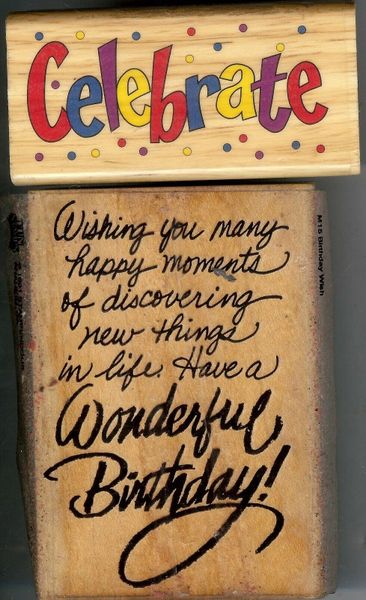 Celebrate
Wishing you many
happy moments
of discovering
new things
in life. Have a
Wonderful
Birthday!
M15 Birthday Wish